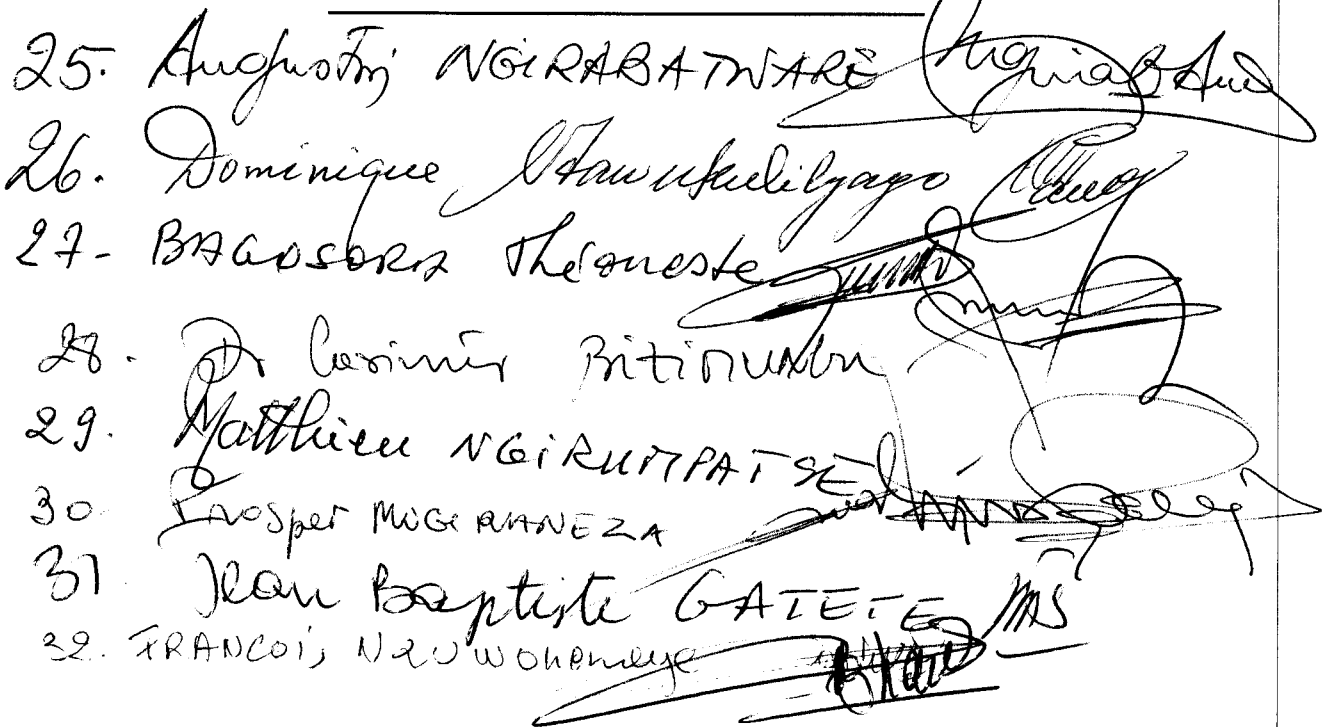 25. Augustin NGIRABATWARE
26. Dominique Ntawukulilyayo
27- BAGOSORA Théoneste
28. Dr Casimir BIZIMUNGU
29. Matthieu NGIRUMPATSE
30 Prosper MUGIRANEZA
31 Jean Baptiste GATETE
32. FRANCOIS NZUWONEMEYE